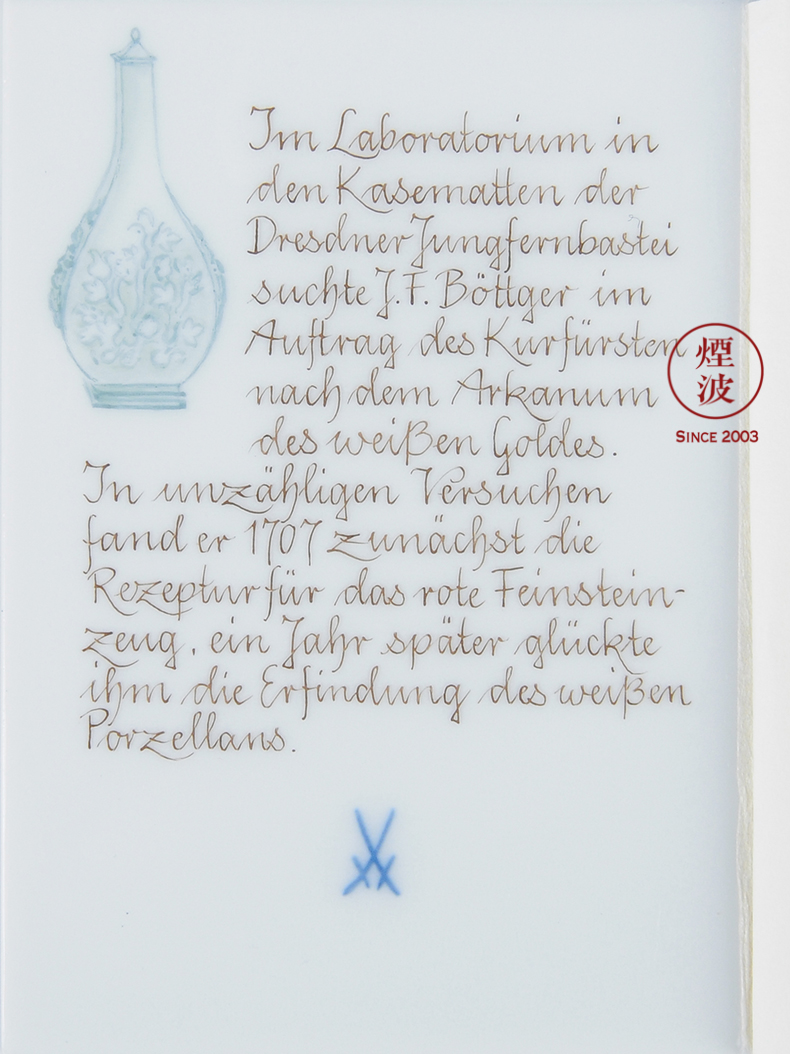 Im Laboratorium in
den Kasematten der
Dresdner Jungfernbastei
suchte J. F. Böttger im
Auftrag des Kurfürsten
nach dem Arkanum
des weißen Goldes.
In unzähligen Versuchen
fand er 1707 zunächst die
Rezeptur für das rote Feinstein-
zeug, ein Jahr später glückte
ihm die Erfindung des weißen
Porzellans.
煙波
SINCE 2003